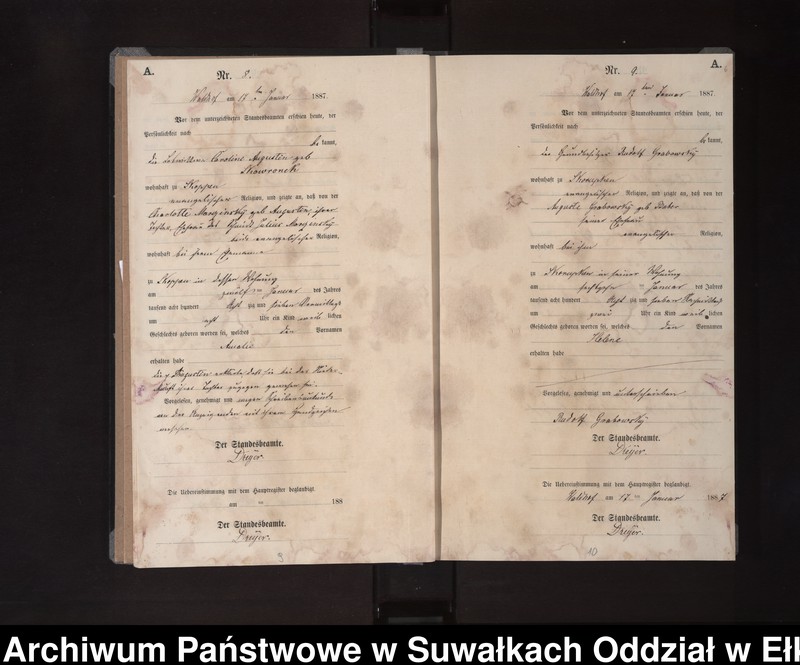 A.
Nr. 8.
am 17 ten Januar 1887.
Vor dem unterzeichneten Standesbeamten erschien heute, der
Persönlichkeit nach
be kannt,
die Caroline Augustin geb
Skowronek
wohnhaft zu Skoppen
evangelischer Religion, und zeigte an, daß von der
Charlotte geb Augustin, ihrer
Tochter, Ehefrau des Schmied Julius
beide evangelischer Religion,
wohnhaft bei ihrem Ehemanne
zu Skoppen in dessen Wohnung
am zwölf ten Januar des Jahres
tausend acht hundert acht zig und sieben Vormittags
um acht Uhr ein Kind weib lichen
Geschlechts geboren worden sei, welches den Vornamen
Amalie
erhalten habe
die p Augustin erklärte, daß sie bei der Nieder-
kunft ihrer Tochter zugegen gewesen sei.
Vorgelesen, genehmigt und wegen Schreibensunkunde
von der Anzeigenden mit ihrem Handzeichen
versehen.
Der Standesbeamte.
Dreyer.
Die Uebereinstimmung mit dem Hauptregister beglaubigt.
am 188
Der Standesbeamte.
Dreyer.
9
A.
Nr. 9.
am 17 ten Januar 1887.
Vor dem unterzeichneten Standesbeamten erschien heute, der
Persönlichkeit nach
be kannt,
der Grundbesitzer Rudolf Grabowsky
wohnhaft zu
evangelischer Religion, und zeigte an, daß von der
Auguste Grabowsky geb
seiner Ehefrau
evangelischer Religion,
wohnhaft bei ihm
zu in seiner Wohnung
am ten Januar des Jahres
tausend acht hundert acht zig und sieben Nachmittags
um zwei Uhr ein Kind weib lichen
Geschlechts geboren worden sei, welches den Vornamen
Helene
erhalten habe
Vorgelesen, genehmigt und unterschrieben
Rudolf Grabowsky
Der Standesbeamte.
Dreyer.
Die Uebereinstimmung mit dem Hauptregister beglaubigt.
am 17 ten Januar 1887
Der Standesbeamte.
Dreyer.
10
Archiwum Państwowe w Suwałkach Oddział w Ełk